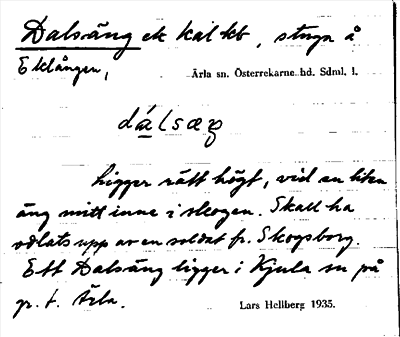 Dalsäng ek kal kb, stuga å
Eklången,
Ärla sn. Österrekarne hd. Sdml. l.
dálsæŋ
Ligger rätt högt, vid en liten
äng mitt inne i skogen. Skall ha
odlats upp av en soldat fr. Skogsborg.
Ett Dalsäng ligger i Kjula sn på
gr. t. Ärla.
Lars Hellberg 1935.